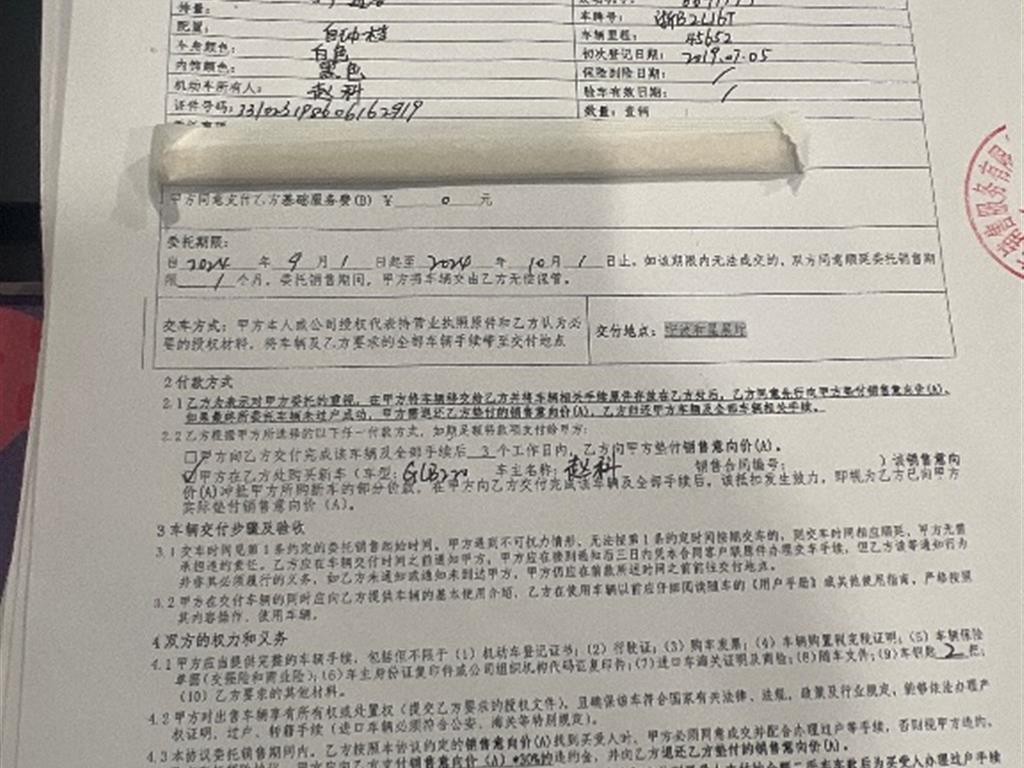 排量:
配置: 自动档
车牌号: 浙B2L16T
车身颜色: 白色
车辆里程: 45652
内饰颜色: 黑色
初次登记日期: 2019.07.05
机动车所有人: 赵科
保险到险日期: /
验车有效日期: /
证件号码: 331023198606162919
数量: 壹辆
甲方同意支付乙方基础服务费(B) ¥ 0 元
委托期限:
自 2024 年 9 月 1 日起至 2024 年 10 月 1 日止。如该期限内无法成交的,双方同意顺延委托销售期
限 1 个月。委托销售期间,甲方将车辆交由乙方无偿保管。
交车方式:甲方本人或公司授权代表持营业执照原件和乙方认为必
要的授权材料,将车辆及乙方要求的全部车辆手续带至交付地点
交付地点: 宁波和星展厅
2 付款方式
2.1 乙方为表示对甲方委托的重视,在甲方将车辆移交给乙方并将车辆相关手续原件存放在乙方处后,乙方同意先行向甲方垫付销售意向价(A)。
如果最终所委托车辆未过户成功,甲方需退还乙方垫付的销售意向价(A),乙方归还甲方车辆及全部车辆相关手续。
2.2 乙方根据甲方所选择的以下任一付款方式,如期足额将款项支付给甲方:
□甲方向乙方交付完成该车辆及全部手续后 3 个工作日内,乙方向甲方垫付销售意向价(A)。
☑甲方在乙方处购买新车(车型: GLB220 车主名称: 赵科 销售合同编号: )该销售意向
价(A)冲抵甲方所购新车的部分价款,在甲方向乙方交付完成该车辆及全部手续后,该抵扣发生效力,即视为乙方已向甲方
实际垫付销售意向价(A)。
3 车辆交付步骤及验收
3.1 交车时间见第1条约定的委托销售起始时间。甲方遇到不可抗力情形,无法按第1条约定时间按期交车的,则交车时间相应顺延,甲方无需
承担违约责任。乙方应在车辆交付时间之前通知甲方,甲方应在接到通知后三日内凭本合同客户联原件办理交车手续,但乙方该等通知行为
并非其必须履行的义务,如乙方未通知或通知未到达甲方,甲方仍应在前款所述时间之前前往交付地点。
3.2 甲方在交付车辆的同时应向乙方提供车辆的基本使用介绍,乙方在使用车辆以前应仔细阅读随车的《用户手册》或其他使用指南,严格按照
其内容操作、使用车辆。
4 双方的权力和义务
4.1 甲方应当提供完整的车辆手续,包括但不限于(1)机动车登记证书;(2)行驶证;(3)购车发票;(4)车辆购置税完税证明;(5)车辆保险
单据(交强险和商业险);(6)车主身份证复印件或公司组织机构代码证复印件;(7)进口车海关证明及商检;(8)随车文件;(9)车钥匙 2 把;
(10)乙方要求的其他材料。
4.2 甲方对出售车辆享有所有权或处置权(提交乙方要求的授权文件),且确保该车符合国家有关法律、法规、政策及行业规定,能够依法办理产
权证明、过户、转籍手续(进口车辆必须符合公安、海关等特别规定)。
4.3 本协议委托销售期间内,乙方按照本协议约定的销售意向价(A)找到买受人时,甲方必须同意成交并配合办理过户等手续,否则视甲方违约,
甲方应向乙方支付销售意向价(A)*30%的违约金,并向乙方退还乙方垫付的销售意向价(A)。
销售服务有限